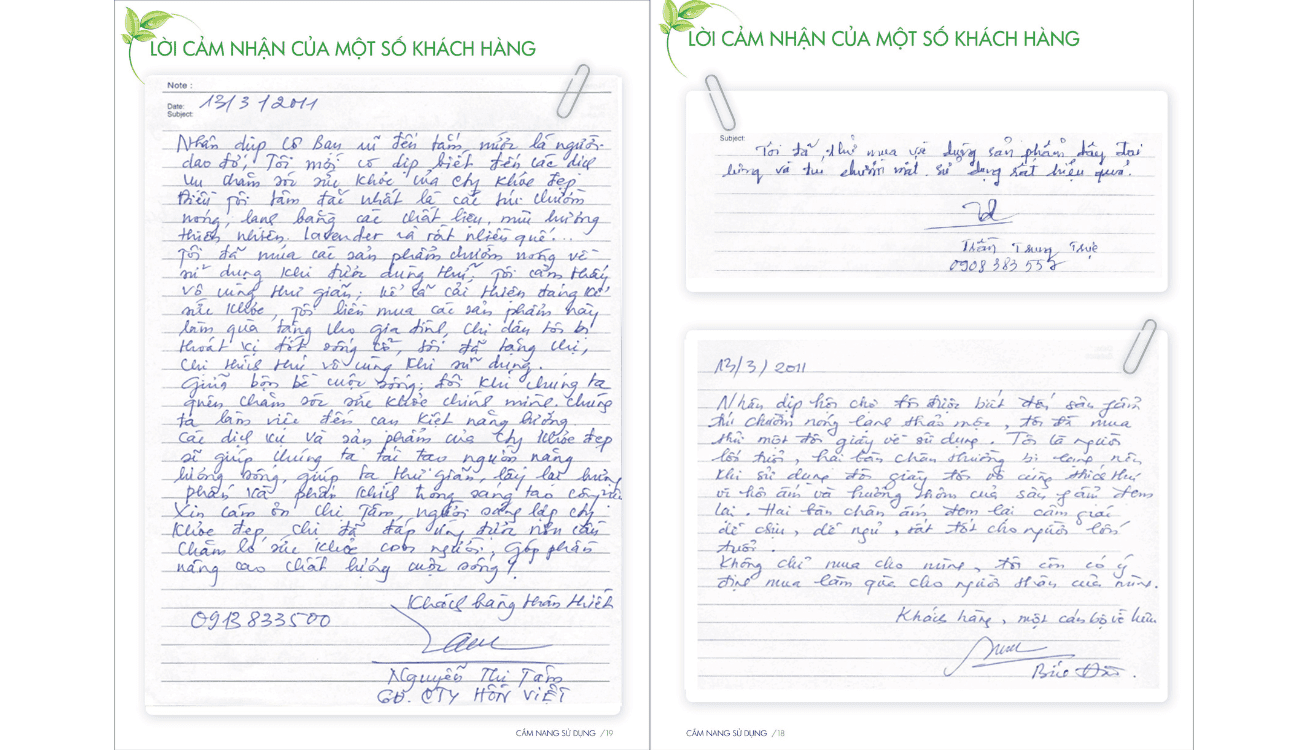 LỜI CẢM NHẬN CỦA MỘT SỐ KHÁCH HÀNG
Note :
Date: 13/3/2011
Subject:
Nhân dịp cô bạn rủ đến tắm nước lá người
dao đỏ, Tôi mới có dịp biết đến các dịch
vụ chăm sóc sức khỏe của Cty Khỏe Đẹp
Điều tôi tâm đắc nhất là các túi chườm
nóng, lạnh bằng các chất liệu, mùi hương
thiên nhiên. lavender và rất nhiều quế...
Tôi đã mua các sản phẩm chườm nóng về
sử dụng khi được dùng thử, Tôi cảm thấy
vô cùng thư giãn, kể cả cải thiện đáng kể
sức khỏe, Tôi liền mua các sản phẩm này
làm quà tặng cho gia đình, chị dâu tôi bị
thoát vị đốt sống cổ, tôi đã tặng chị,
chị thích thú vô cùng khi sử dụng.
Giữa bộn bề cuộc sống, đôi khi chúng ta
quên chăm sóc sức khỏe chính mình. chúng
ta làm việc đến cạn kiệt năng lượng.
Các dịch vụ và sản phẩm của Cty Khỏe đẹp
sẽ giúp chúng ta tái tạo nguồn năng
lượng sống, giúp ta thư giãn, lấy lại hưng
phấn và phấn khích trong sáng tạo công việc
Xin cảm ơn chị Tâm, người sáng lập cty
Khỏe đẹp, chị đã đáp ứng được nhu cầu
chăm lo sức khỏe con người, góp phần
nâng cao chất lượng cuộc sống!
Khách hàng thân thiết
0913833500
Nguyễn Thị Tâm
GĐ. CTY HỒN VIỆT
CẨM NANG SỬ DỤNG /19
LỜI CẢM NHẬN CỦA MỘT SỐ KHÁCH HÀNG
Subject:
Tôi đã thử mua về dụng sản phẩm dây đai
lưng và túi chườm mát. sử dụng rất hiệu quả.
Trần Trung Trực
0908383557
13/3/2011
Nhân dịp hội chợ tôi được biết đến sản phẩm
túi chườm nóng lạnh thảo mộc, tôi đã mua
thử một đôi giày về sử dụng. Tôi là người
lớn tuổi, hai bàn chân thường bị lạnh nên
khi sử dụng đôi giày tôi vô cùng thích thú
vì hơi ấm và hương thơm của sản phẩm đem
lại. Hai bàn chân ấm đem lại cảm giác
dễ chịu, dễ ngủ, rất tốt cho người lớn
tuổi.
Không chỉ mua cho mình, tôi còn có ý
định mua làm quà cho người thân của mình.
Khách hàng, một cán bộ về hưu
CẨM NANG SỬ DỤNG /18